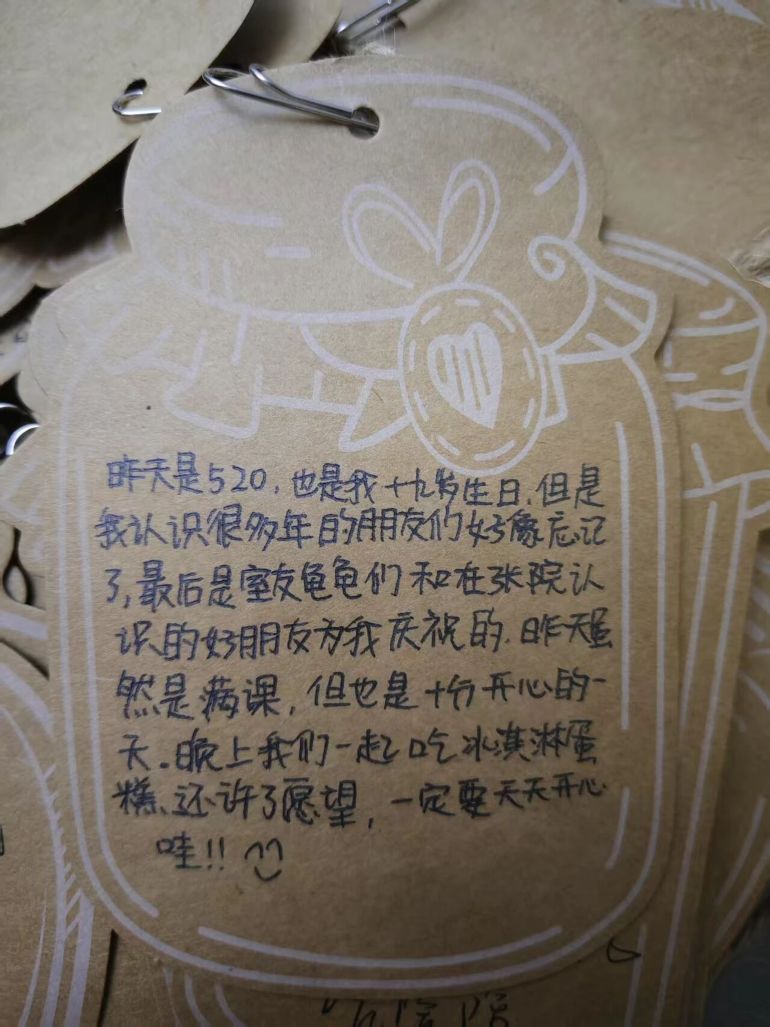 昨天是520，也是我十九岁生日，但是
我认识很多年的朋友们好像忘记
了，最后是室友龟龟们和在张院认
识的好朋友为我庆祝的．昨天虽
然是满课，但也是十分开心的一
天．晚上我们一起吃冰淇淋蛋
糕、还许了愿望，一定要天天开心
哇!!